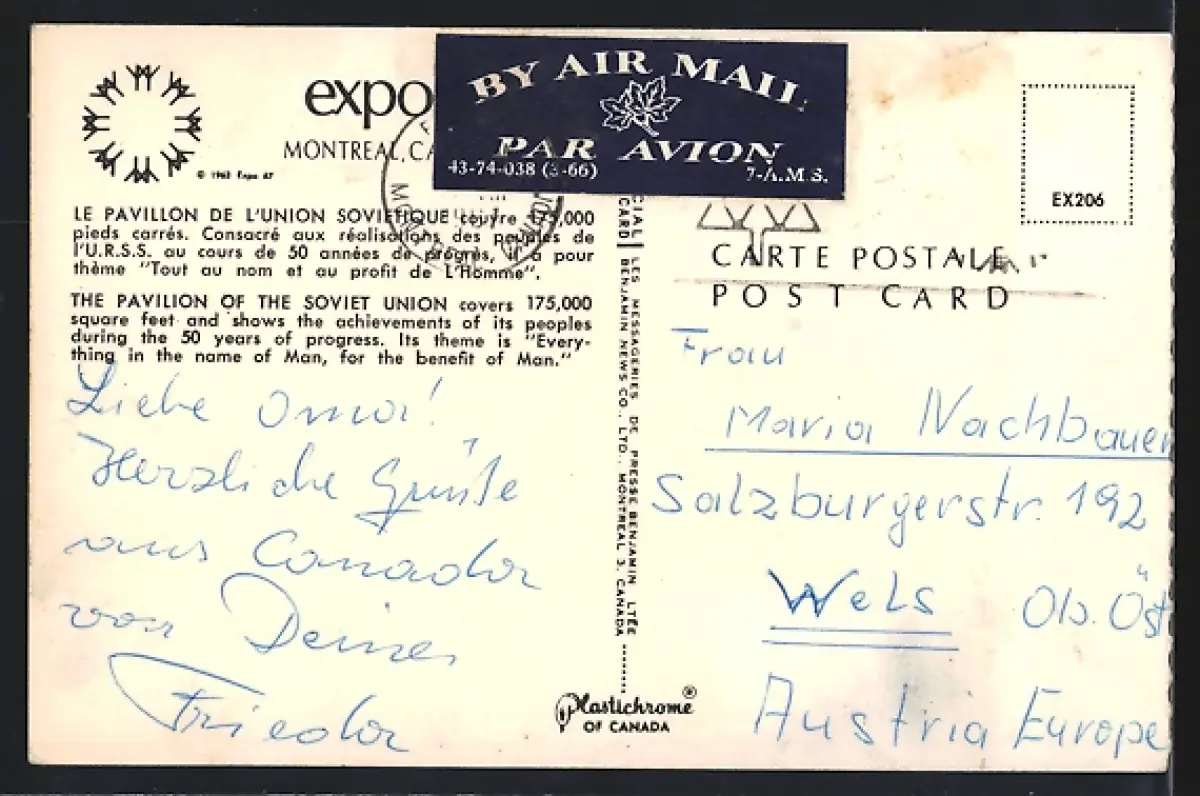 expo
MONTREAL, CA
© 1963 Expo 67
BY AIR MAIL
PAR AVION
43-74-038 (3-66) 7-A.M.S.
EX206
LE PAVILLON DE L'UNION SOVIÉTIQUE couvre 175,000
pieds carrés. Consacré aux réalisations des peuples de
l'U.R.S.S. au cours de 50 années de progrès, il a pour
thème "Tout au nom et au profit de L'Homme".
THE PAVILION OF THE SOVIET UNION covers 175,000
square feet and shows the achievements of its peoples
during the 50 years of progress. Its theme is "Every-
thing in the name of Man, for the benefit of Man."
Liebe Oma!
Herzliche Grüße
aus Canada
von Deiner
Frieda
CIAL LES MESSAGERIES DE PRESSE BENJAMIN LTÉE
CARD BENJAMIN NEWS CO., LTD., MONTREAL 3, CANADA
Plastichrome®
OF CANADA
CARTE POSTALE
POST CARD
Frau
Maria Nachbauer
Salzburgerstr. 192
Wels Ob. Öst
Austria Europe